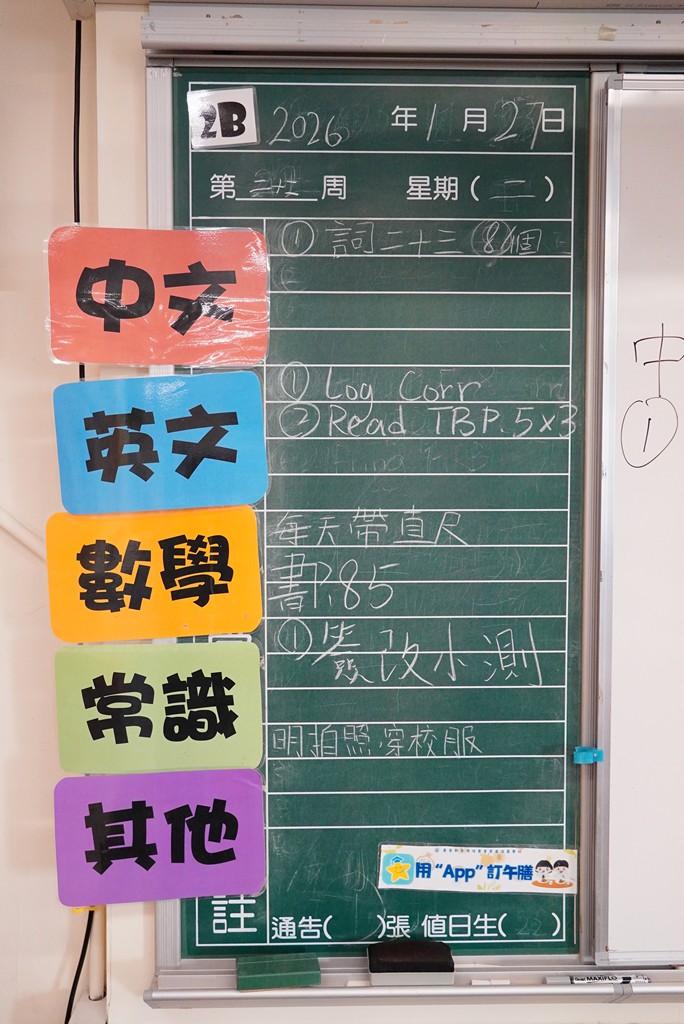 2B 2026 年 1 月 27 日
第 周 星期 ( 二 )
中文
① 詞二十三 8個
英文
① Log Corr
② Read TBP.5×3
數學
每天帶直尺
書P.85
常識
① 簽改小測
其他
明拍照穿校服
用“App”訂午膳
註
通告( )張 值日生( 22 )
中
①